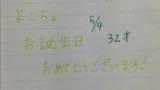 よこちょ
5/9
お誕生日 32才
おめでとうございます!